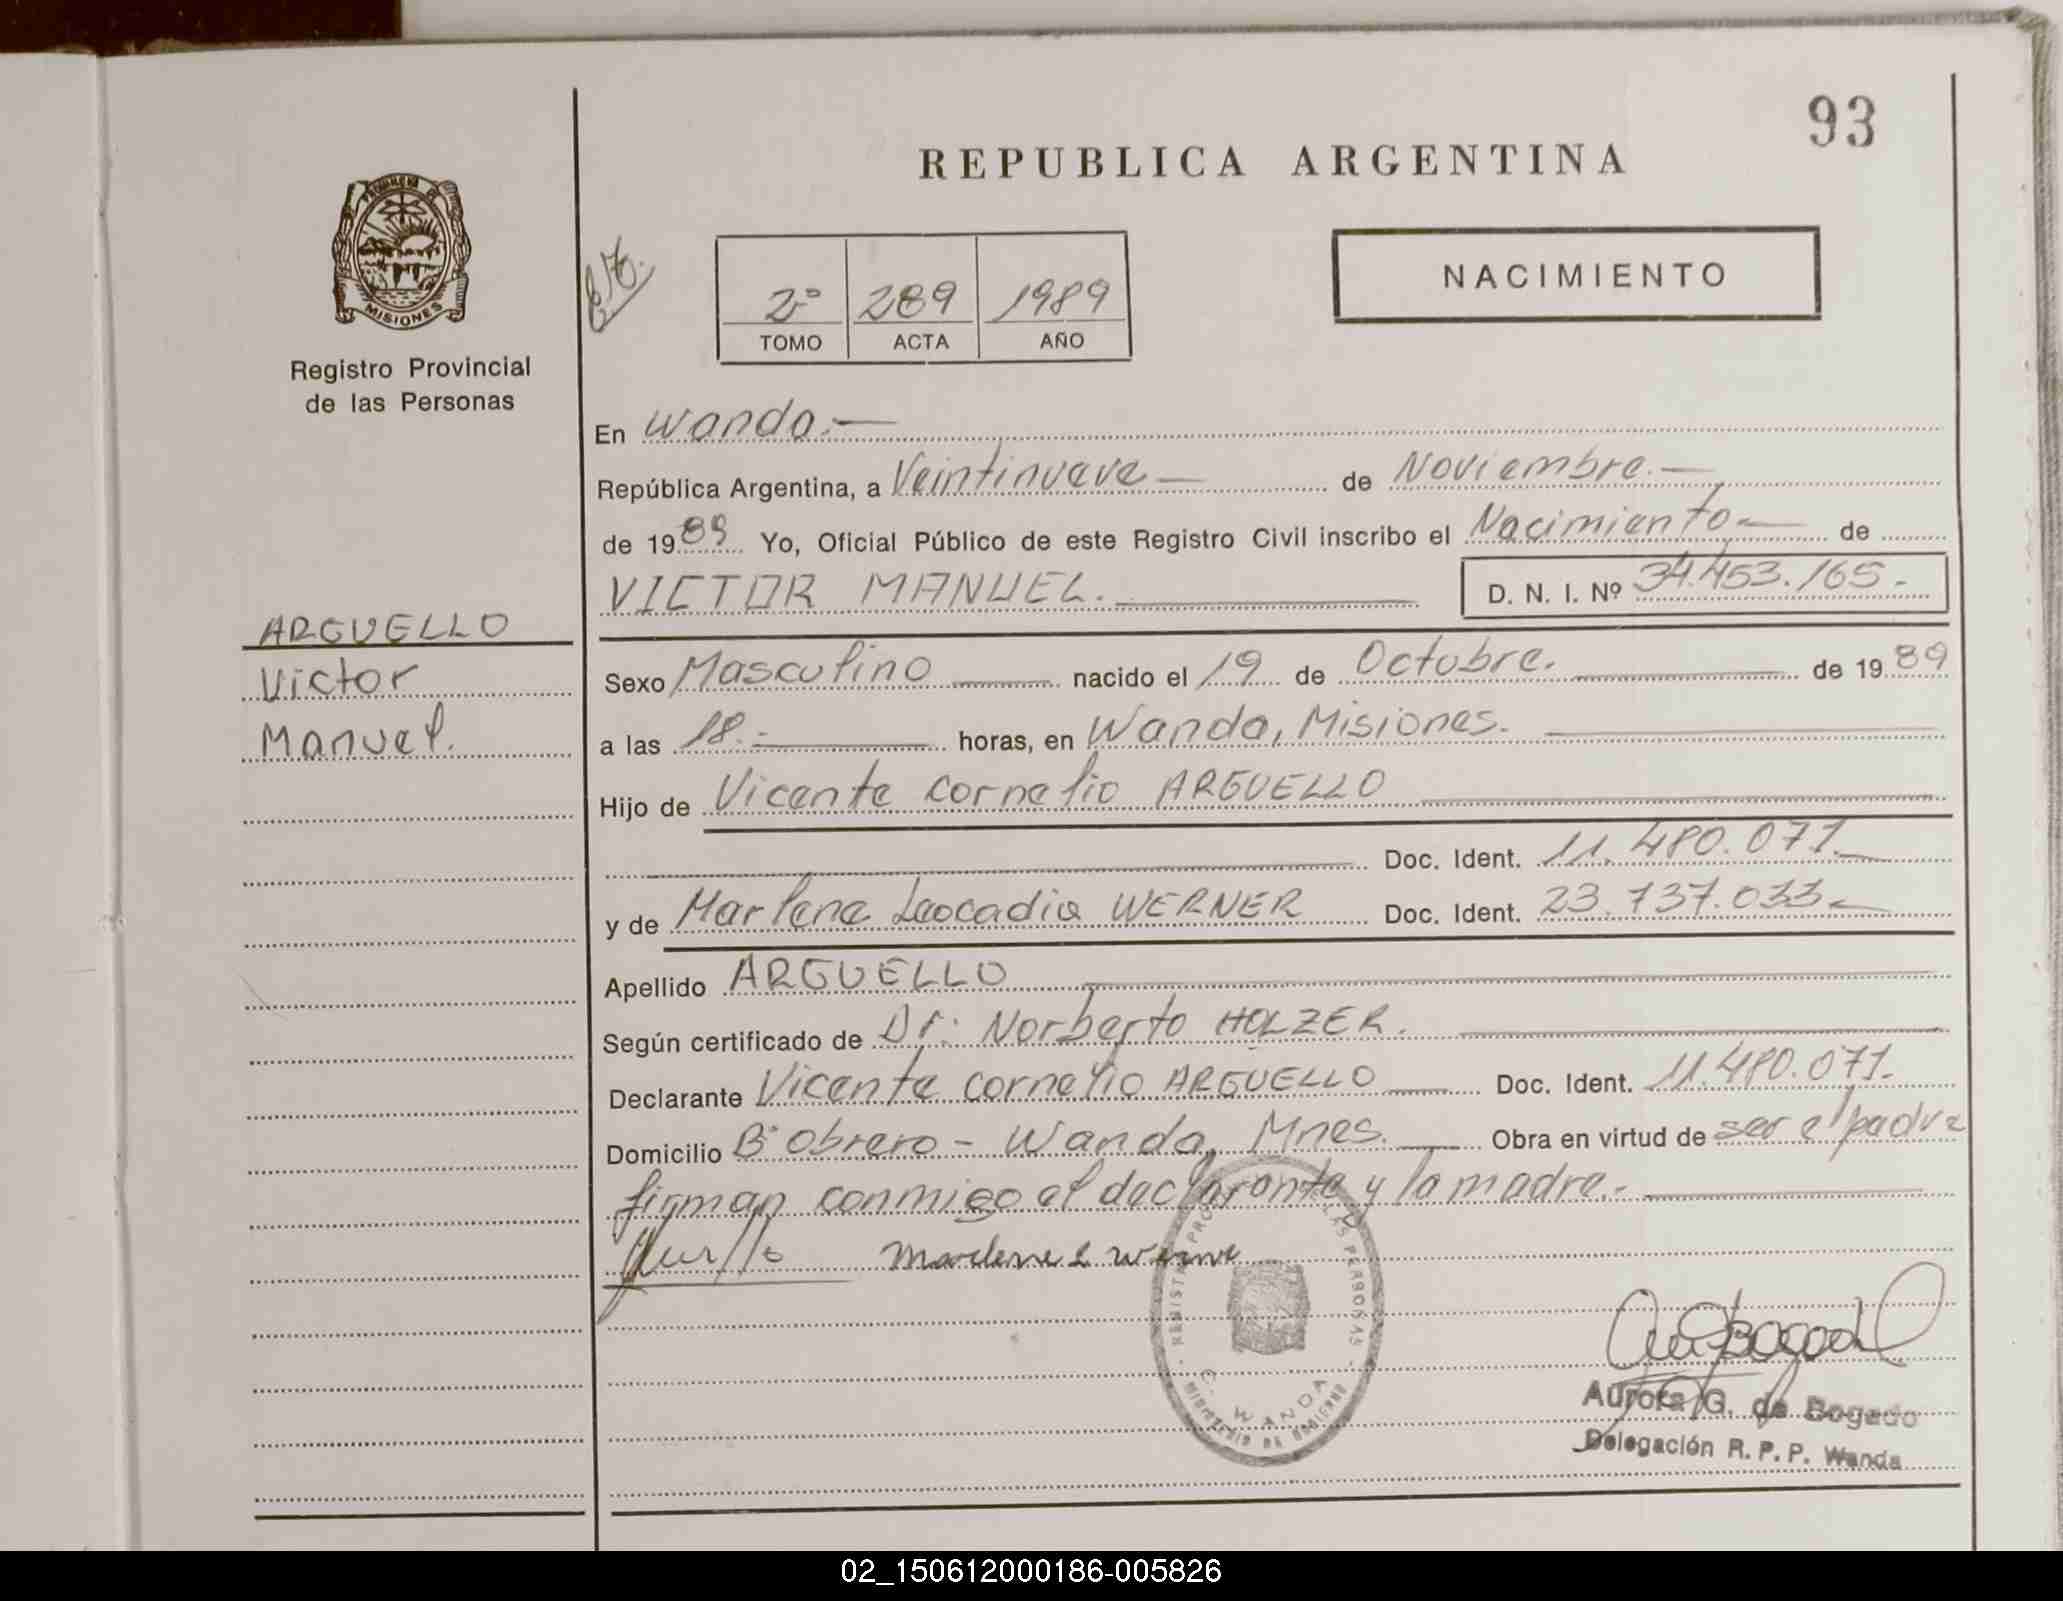 93
REPUBLICA ARGENTINA
PROVINCIA DE
MISIONES
Registro Provincial
de las Personas
2º 289 1989
TOMO ACTA AÑO
NACIMIENTO
En Wanda.-
República Argentina, a Veintinueve de Noviembre.-
de 1989 Yo, Oficial Público de este Registro Civil inscribo el Nacimiento- de
VICTOR MANUEL. D. N. I. Nº 34.453.165.-
ARGUELLO
Victor
Manuel.
Sexo Masculino nacido el 19 de Octubre. de 1989
a las 18.- horas, en Wanda, Misiones.
Hijo de Vicente Cornelio ARGUELLO
Doc. Ident. 11.480.071.
y de Marlene Leocadia WERNER Doc. Ident. 23.737.033.-
Apellido ARGUELLO
Según certificado de Dr. Norberto HOLZER.
Declarante Vicente Cornelio ARGUELLO Doc. Ident. 11.480.071.
Domicilio Bº Obrero - Wanda, Mnes. Obra en virtud de ser el padre
firman conmigo el declarante y la madre.-
Marlene L Werne
LAS PERSONAS
WANDA
MINISTERIO DE GOBIERNO
Aurora G. de Bogado
Delegación R. P. P. Wanda
02_150612000186-005826